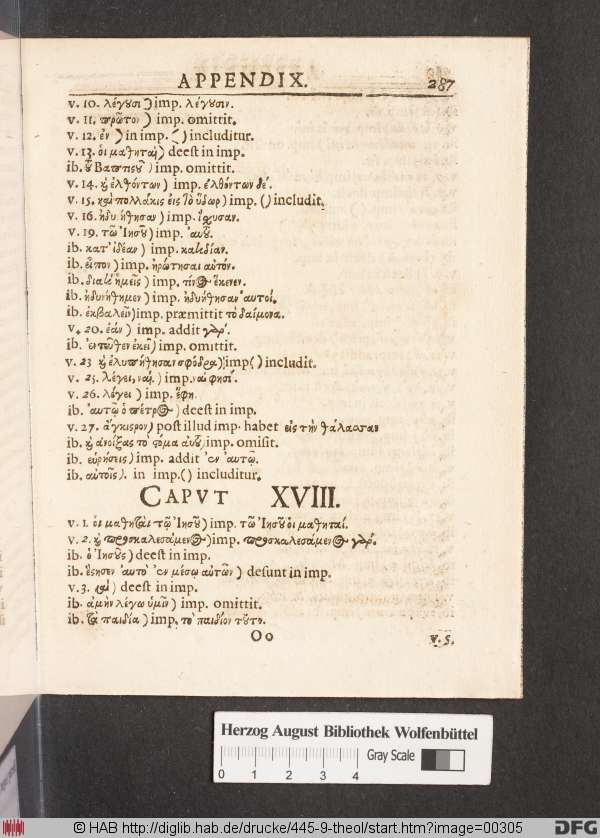 APPENDIX. 287
v. 10. λέγουσι) imp. λέγουσιν.
v. 11. πρῶτον) imp. omittit.
v. 12. ἐν) in imp. () includitur.
v. 13. οἱ μαθηταὶ) deest in imp.
ib. imp. omittit.
v. 14. καὶ ἐλθόντων) imp. ἐλθόντων δέ.
v. 15. καὶ πολλάκις εἰς τὸ ὕδωρ) imp. () includit.
v. 16. ἠδυνήθησαν) imp. ἴσχυσαν.
v. 19. τῶ Ἰησοῦ) imp. αὐτοῦ.
ib. κατ' ἰδέαν) imp. κατιδίαν.
ib. εἶπον) imp. ἠρώτησαι αὐτόν.
ib. διατὶ ἡμεῖς) imp. τίνος ἕνεκεν.
ib. ἠδυνήθημεν) imp. ἠδυνήθησαν αὐτοί.
ib. ἐκβαλεῖν) imp. præmittit τὸ δαίμονα.
v. 20. ἐάν) imp. addit γάρ.
ib. ἐντεῦθεν ἐκεῖ) imp. omittit.
v. 23 καὶ ἐλυπήθησαν σφόδρα) imp () includit.
v. 25. λέγει, ναί.) imp. ναὶ φησί.
v. 26. λέγει) imp. ἔφη.
ib. αὐτῶ ὁ πέτρος) deest in imp.
v. 27. ἄγκιστρον) post illud imp. habet εἰς τὴν θάλασσαν
ib. καὶ ἀνοίξας τὸ στόμα αὐτοῦ, imp. omisit.
ib. εὑρήσεις) imp. addit ἐν αὐτῶ.
ib. αὐτοῖς). in imp. () includitur.
CAPVT XVIII.
v. 1. οἱ μαθηταὶ τῶ Ἰησοῦ) imp. τῶ Ἰησοῦ οἱ μαθηταί.
v. 2. καὶ προσκαλεσάμενος) imp. προσκαλεσάμενος γάρ.
ib. ὁ Ἰησοῦς) deest in imp.
ib. ἔστησεν αὐτὸ ἐν μέσω αὐτῶν) desunt in imp.
v. 3. καὶ) deest in imp.
ib. ἀμὴν λέγω ὑμῖν) imp. omittit.
ib. τὰ παιδία) imp. τὸ παιδίον τοῦτο.
Oo v. 5.
Herzog August Bibliothek Wolfenbüttel
Gray Scale
0 1 2 3 4
© HAB http://diglib.hab.de/drucke/445-9-theol/start.htm?image=00305 DFG